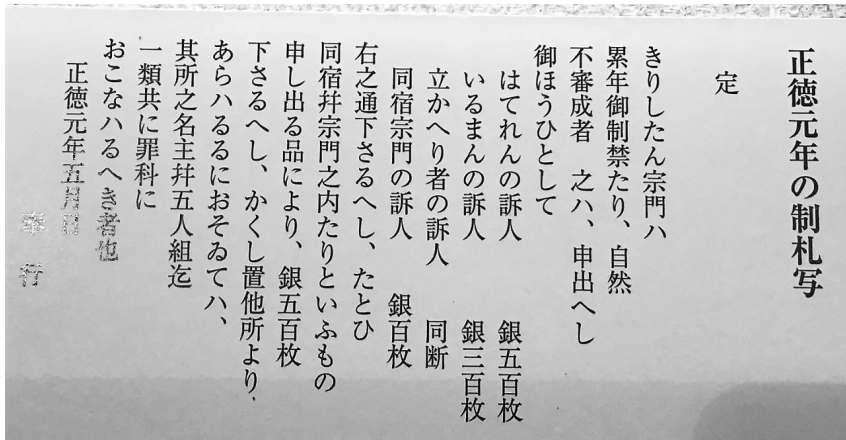 正徳元年の制札写
定
きりしたん宗門ハ
累年御制禁たり、自然
不審成者　之ハ、申出へし
御ほうひとして
はてれんの訴人　銀五百枚
いるまんの訴人　銀三百枚
立かへり者の訴人　同断
同宿宗門の訴人　銀百枚
右之通下さるへし、たとひ
同宿幷宗門之内たりといふもの
申し出る品により、銀五百枚
下さるへし、かくし置他所より、
あらハるるにおそゐてハ、
其所之名主幷五人組迄
一類共に罪科に
おこなハるへき者也
正徳元年五月日
奉行